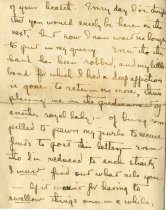 of your health. Every day I've hoped
that you would surely be here on the
next, but now I can wait no longer
to put in my query. Even tho the
bank has been robbed, and my
bond for which I had a deep affection
is gone to return no more, thus
placing me in the predicament of
another royal lady - of being com-
pelled to pawn my jewels to secure
funds to post this letter - even
tho I'm reduced to such straits
I must find out what ails you
- If it weren't for having to
swallow things once in a while,